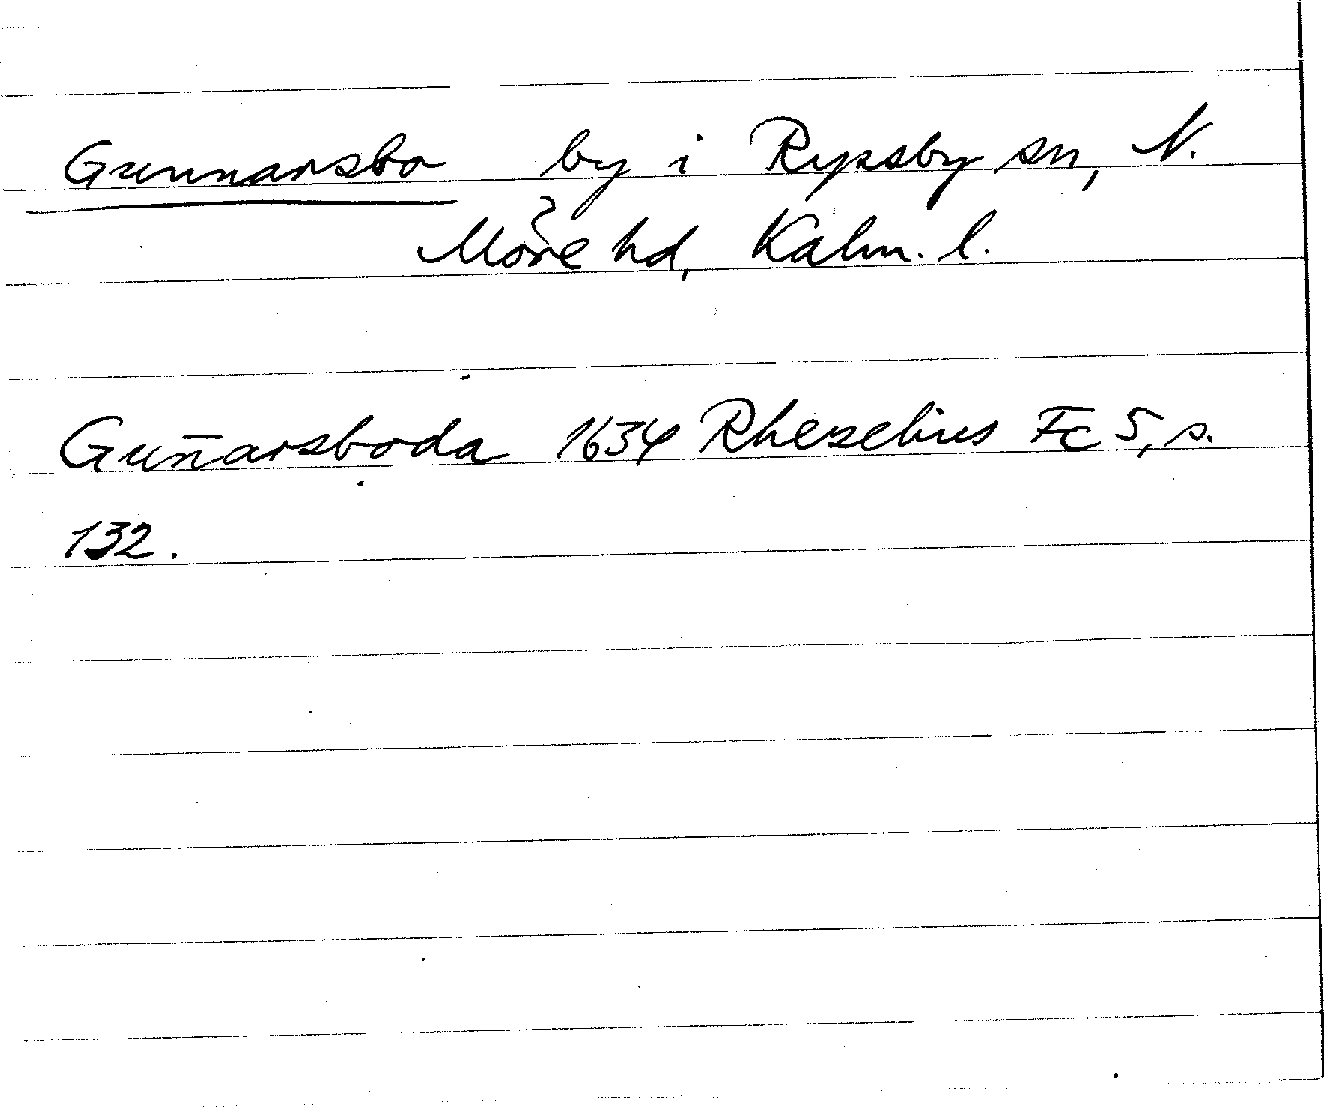 Gunnarsbo by i Ryssby sn, N.
Möre hd, Kalm. l.
Gun̄arsboda 1634 Rhezelius Fc 5, s.
132.